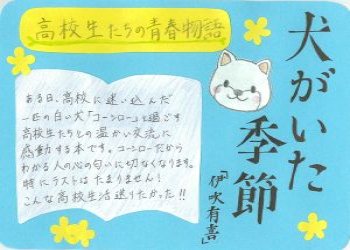 高校生たちの青春物語
犬がいた
季節
「伊吹有喜」
ある日、高校に迷い込んだ
一匹の白い犬「コーシロー」と過ごす
高校生たちとの温かい交流に
感動する本です。コーシローだから
わかる人の心の匂いに切なくなります。
特にラストはたまりません！
こんな高校生活送りたかった!!